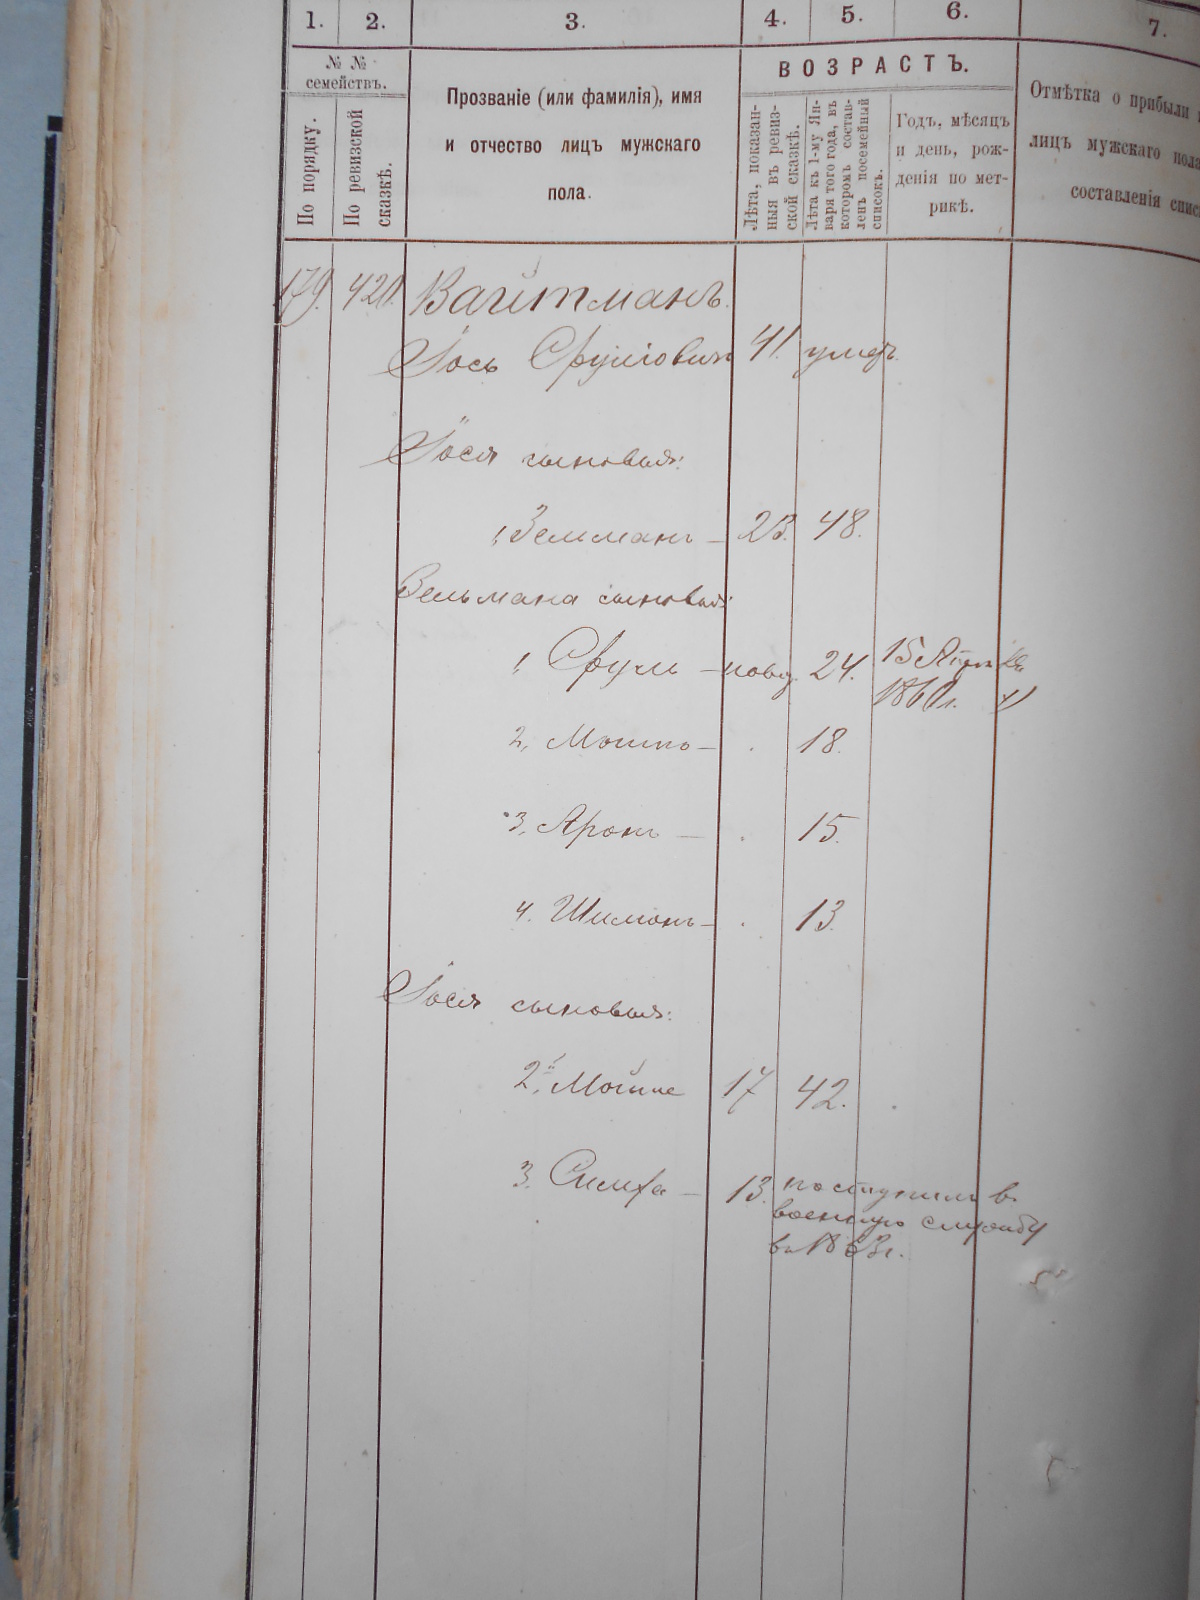 1. 2. 3. 4. 5. 6. 7.
№ №
семействъ.
По порядку.
По ревизской
сказкѣ.
Прозваніе (или фамилія), имя
и отчество лицъ мужскаго
пола.
ВОЗРАСТЪ.
Лѣта, показан-
ныя въ ревиз-
ской сказкѣ.
Лѣта къ 1-му Ян-
варя того года, въ
которомъ состав-
ленъ посемейный
списокъ.
Годъ, мѣсяцъ
и день, рож-
денія по мет-
рикѣ.
Отмѣтка о прибыли
лицъ мужскаго пола
составленія списк
179. 420. Вайтманъ.
Іось Срулiовичъ 41. умер.
Іося сыновья:
1, Зельманъ — 23. 48.
Зельмана сыновья:
1, Сруль — новор. 24. 15 Апреля
1860 г.
2, Мошко — . 18.
3, Аронъ — . 15.
4. Шимонъ — . 13.
Іося сыновья:
2, Мойше 17 42.
3. Симха — 13. поступилъ в
военную службу
в 1863 г.